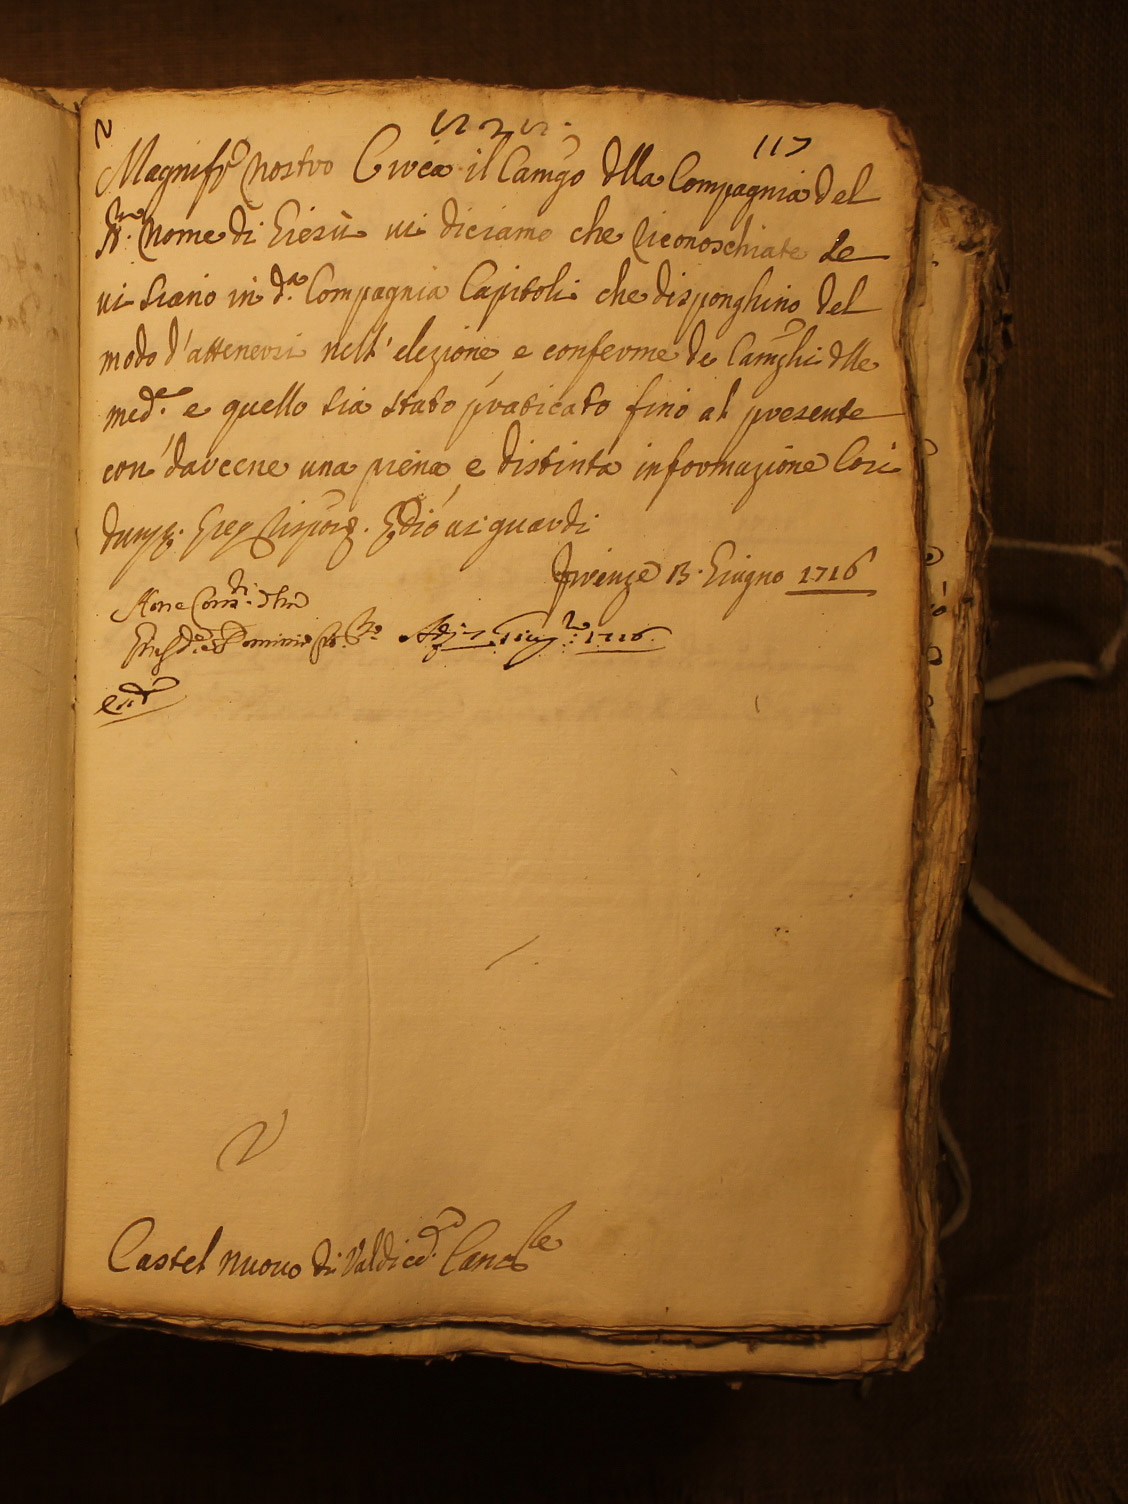 117
Magnif.co nostro Circa il Camg.o dlla Compagnia del
Nome di Giesù vi diciamo che riconoschiate se
vi siano in d.a Compagnia Capitoli che disponghino del
modo d'attenersi nell'elezione e conferme de Camghi dlle
med.e e quello sia stato praticato fino al presente
con darcene una piena e distinta informazione Cosi
Dio vi guardi
Firenze 13. Giugno 1716
Dominio 1716
Castel nuovo di Valdicec.a Canc.re